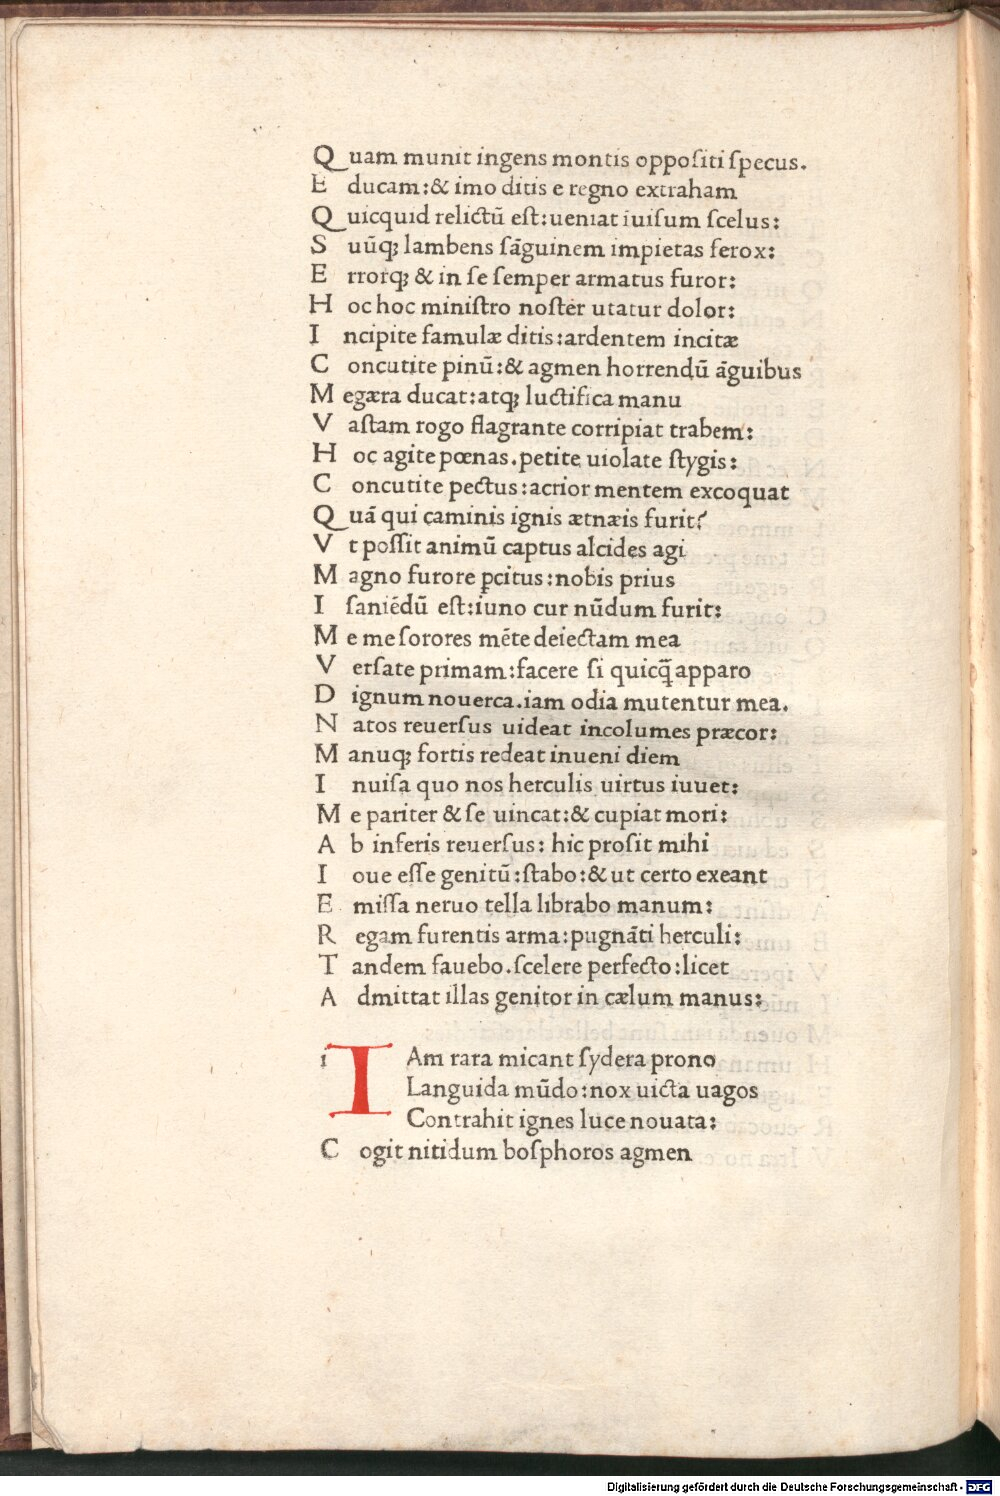 Quam munit ingens montis oppoſiti ſpecus.
Educam:& imo ditis e regno extraham
Quicquid relictū eſt:ueniat iuiſum ſcelus:
Suūqꝫ lambens ſāguinem impietas ferox:
Errorqꝫ & in ſe ſemper armatus furor:
Hoc hoc miniſtro noſter utatur dolor:
Incipite famulæ ditis:ardentem incitæ
Concutite pinū:& agmen horrendū āguibus
Megæra ducat:atqꝫ luctifica manu
Vaſtam rogo flagrante corripiat trabem:
Hoc agite pœnas.petite uiolate ſtygis:
Concutite pectus:acrior mentem excoquat
Quā qui caminis ignis ætnæis furit?
Vt poſſit animū captus alcides agi
Magno furore ꝑcitus:nobis prius
Iſaniēdū eſt:iuno cur nūdum furit:
Me me ſorores mēte deiectam mea
Verſate primam:facere ſi quicq̄ apparo
Dignum nouerca.iam odia mutentur mea.
Natos reuerſus uideat incolumes præcor:
Manuqꝫ fortis redeat inueni diem
Inuiſa quo nos herculis uirtus iuuet:
Me pariter & ſe uincat:& cupiat mori:
Ab inferis reuerſus: hic proſit mihi
Ioue eſſe genitū:ſtabo:& ut certo exeant
Emiſſa neruo tella librabo manum:
Regam furentis arma:pugnāti herculi:
Tandem fauebo.ſcelere perfecto:licet
Admittat illas genitor in cælum manus:
i IAm rara micant ſydera prono
Languida mūdo:nox uicta uagos
Contrahit ignes luce nouata:
Cogit nitidum boſphoros agmen
Digitalisierung gefördert durch die Deutsche Forschungsgemeinschaft - DFG